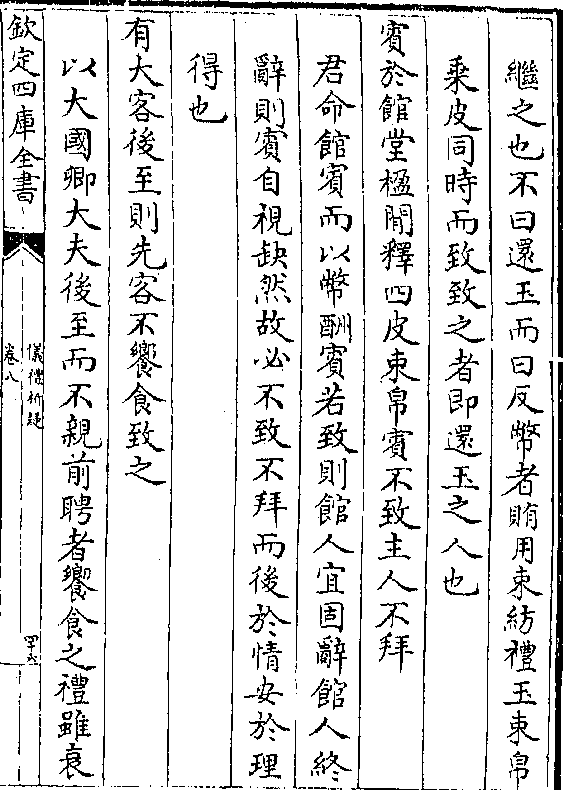 繼之也不曰還玉而曰反幣者賄用束紡禮玉束帛
乘皮同時而致致之者即還玉之人也
賓於館堂楹閒釋四皮束帛賓不致主人不拜
君命館賓而以幣酬賓若致則館人宜固辭館人終
辭則賓自視缺然故必不致不拜而後於情安於理
得也
有大客後至則先客不饗食致之
以大國卿大夫後至而不親前聘者饗食之禮雖衰
欽定四庫全書
儀禮析疑
卷八
四十六